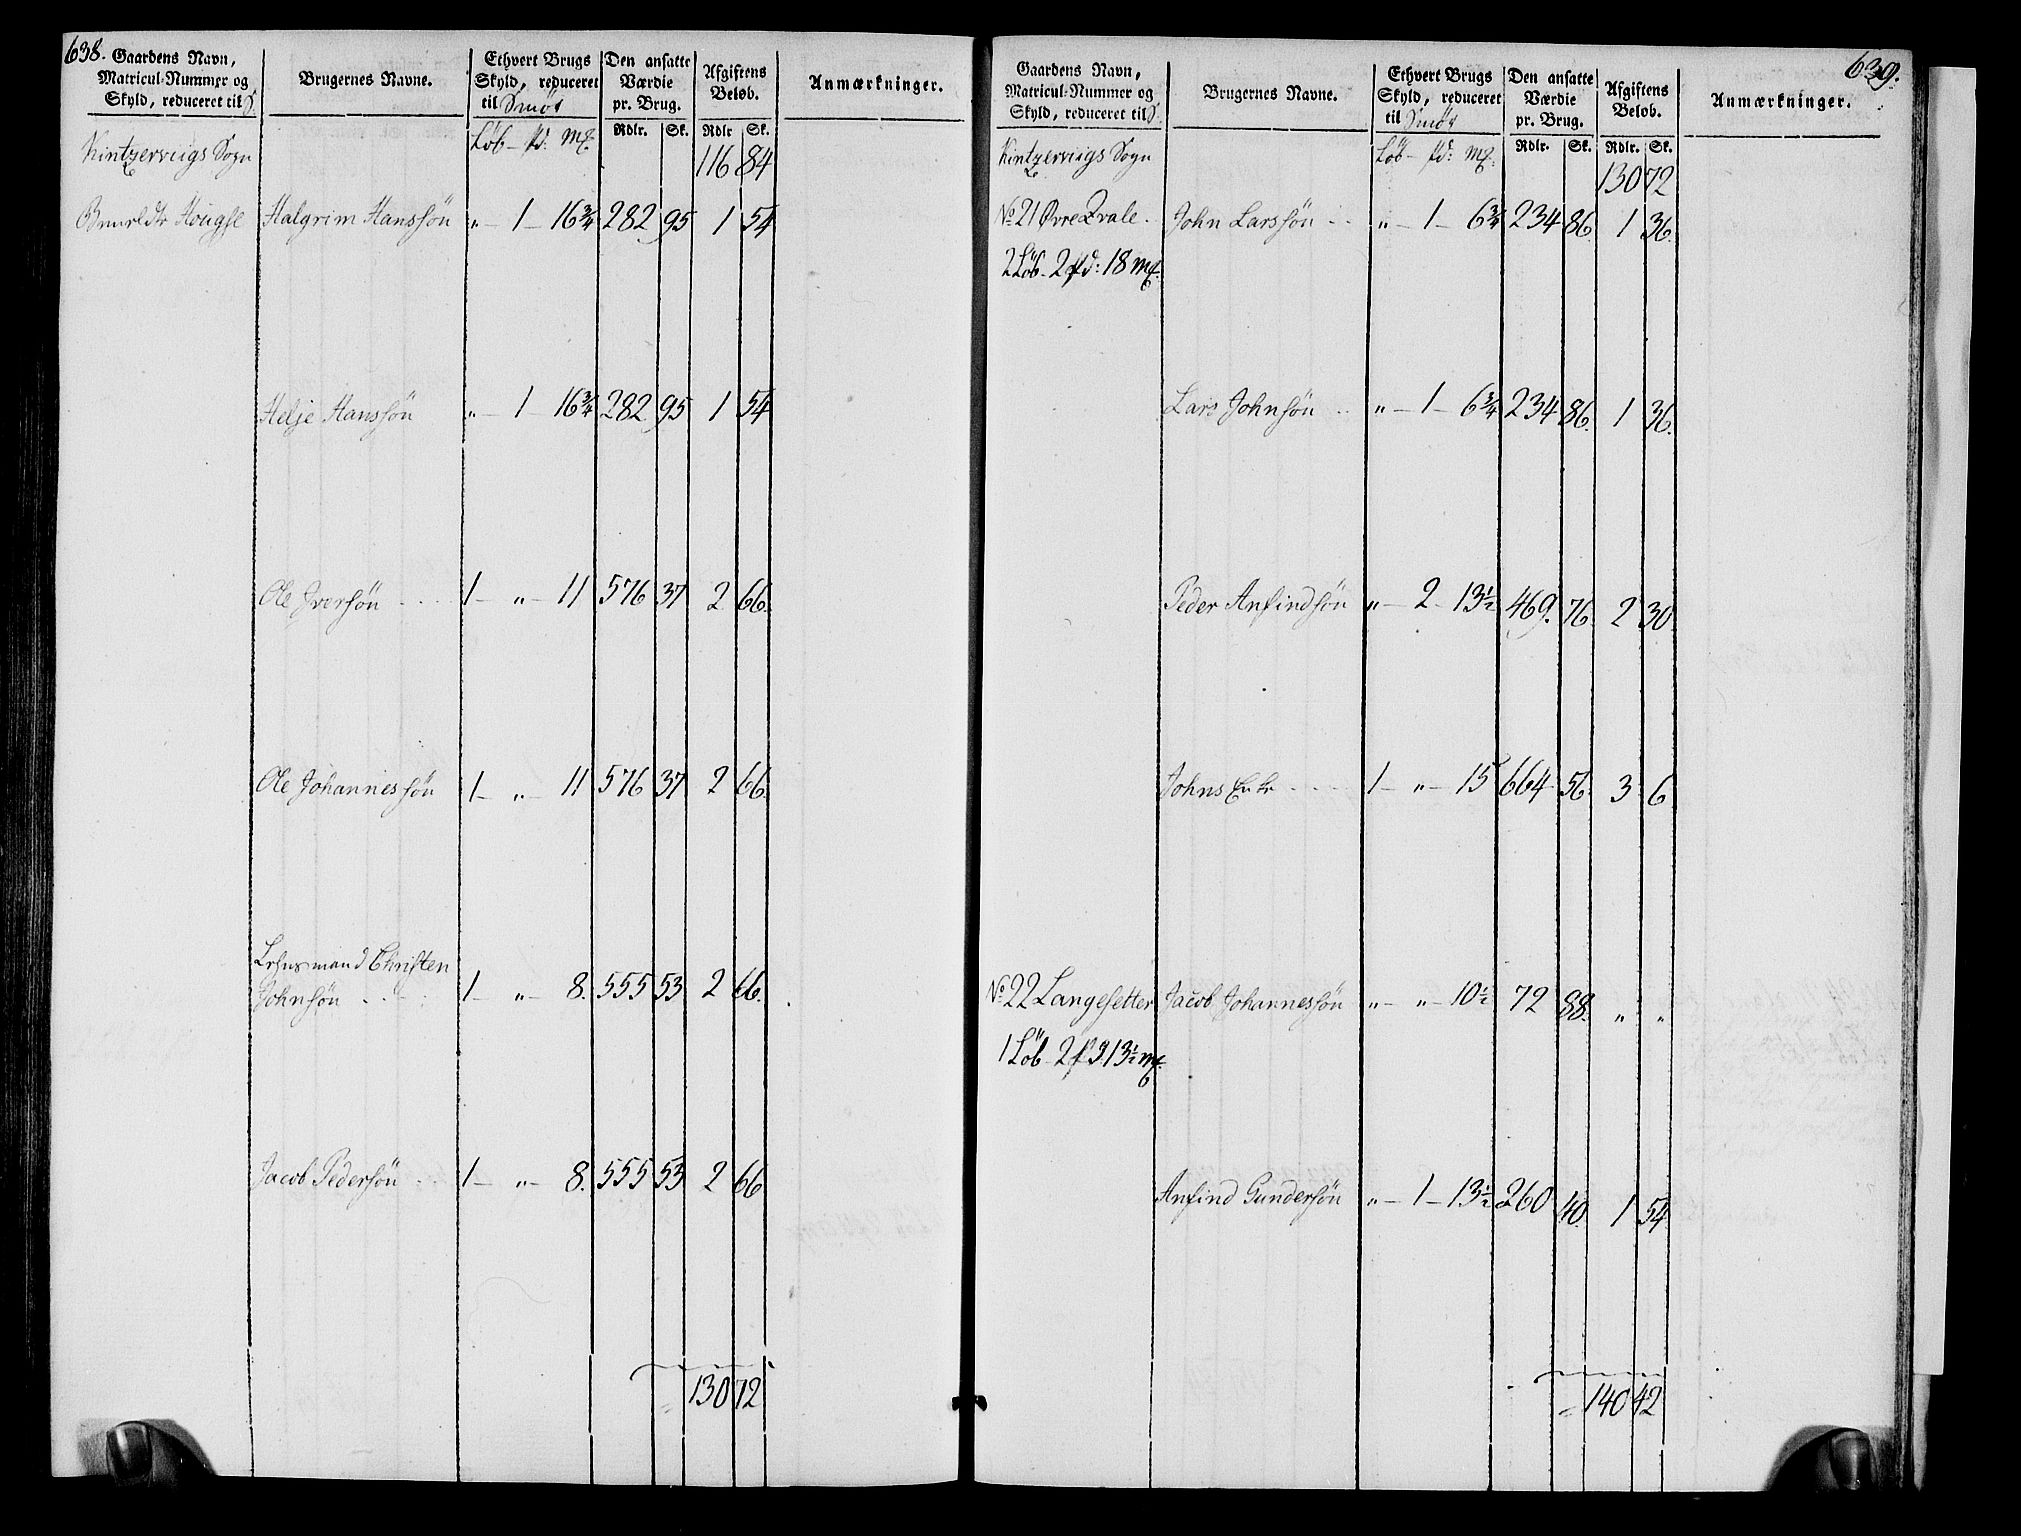 638.
Gaardens Navn,
Matricul-Nummer og
Skyld, reduceret til S.
Brugernes Navne.
Ethvert Brugs
Skyld, reduceret
til Smör
Den ansatte
Værdie
pr. Brug.
Afgiftens
Beløb.
Anmærkninger.
Löb - pd: mk. Rdlr. Sk. Rdlr Sk.
Kintzerviigs Sogn 116 84
Hougse Halgrim Hanssön " - 1 - 16 3/4 282 95 1 54
Helje Hanssön " - 1 - 16 3/4 282 95 1 54
Ole Iversön 1 - " - 11 576 37 2 66.
Ole Johannessön 1 - " - 11 576 37 2 66.
Lehnsmand Christen
Johnsön 1 - " - 8. 555 53 2 66.
Jacob Pedersön 1 - " - 8. 555 53 2 66
130 72
639.
Gaardens Navn,
Matricul-Nummer og
Skyld, reduceret til S.
Brugernes Navne.
Ethvert Brugs
Skyld, reduceret
til Smör
Den ansatte
Værdie
pr. Brug.
Afgiftens
Beløb.
Anmærkninger.
Löb - pd: mk. Rdlr. Sk. Rdlr. Sk.
Kintzerviigs Sogn 130 72
No 21 Øvre Qvale John Larssön " - 1 - 6 3/4 234 86. 1 36.
2 Löb - 2 pd: 18 mk.
Lars Johnsön " - 1 - 6 3/4 234 86. 1 36.
Peder Anfindsön " - 2 - 13 1/2 469. 76. 2 30.
Johns Enke 1 - " - 15 664 56. 3 6.
No 22 Langesetter Jacob Johannessön " - " - 10 1/2 72 88. " "
1 Löb - 2 pd 13 1/2 mk.
Anfind Gundersön " - 1 - 13 1/2 260 40. 1 54
140 42